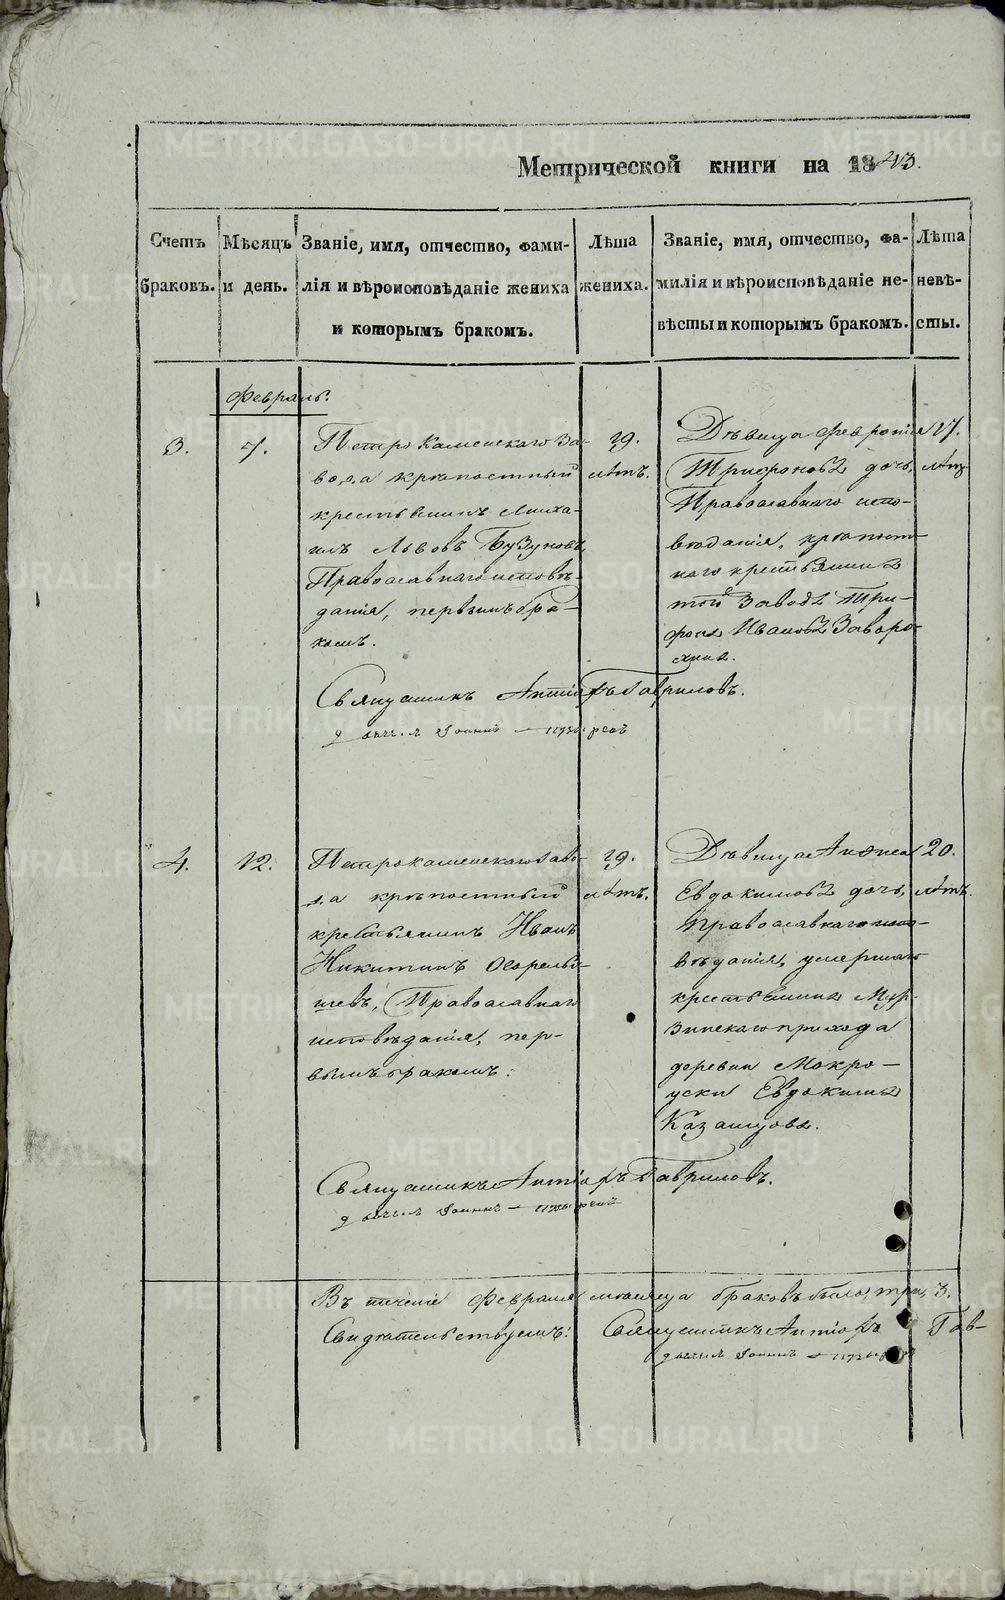 Метрической книги на 1843.
Счетъ браковъ.
Мѣсяцъ и день.
Званіе, имя, отчество, фами-
лія и вѣроисповѣданіе жениха
и которымъ бракомъ.
Лѣта жениха.
Званіе, имя, отчество, фа-
милія и вѣроисповѣданіе не-
вѣсты и которымъ бракомъ.
Лѣта невѣ-
сты.
Февраль.
3.
7.
Петрокаменскаго за-
вода крѣпостный
крестьянинъ Миха-
илъ Львовъ Бузуновъ,
Православнаго исповѣ-
данія, первымъ бра-
комъ.
19.
лѣтъ.
Дѣвица Феврония
Трифонова дочь,
Православнаго испо-
вѣданія, крѣпост-
наго крестьянина
того Завода Три-
фона Иванова Заворо-
хина.
17.
лѣтъ
Священникъ Гавриловъ.
4.
12.
Петрокаменскаго заво-
да крѣпостный
крестьянинъ Иванъ
Никитинъ Огорельі-
шевъ, Православнаго
исповѣданія, пер-
вымъ бракомъ.
19.
лѣтъ.
Дѣвица Анна
Евдокимова дочь,
Православнаго испо-
вѣданія, умершаго
крестьянина Мур-
зинскаго прихода
деревни Мокро-
уски Евдокима
Казанцова.
20.
лѣтъ.
Священникъ Гавриловъ.
Въ теченіе Февраля мѣсяца браковъ было три, 3.
Свидѣтельствуемъ: Священникъ Гав-
METRIKI.GASO-URAL.RU